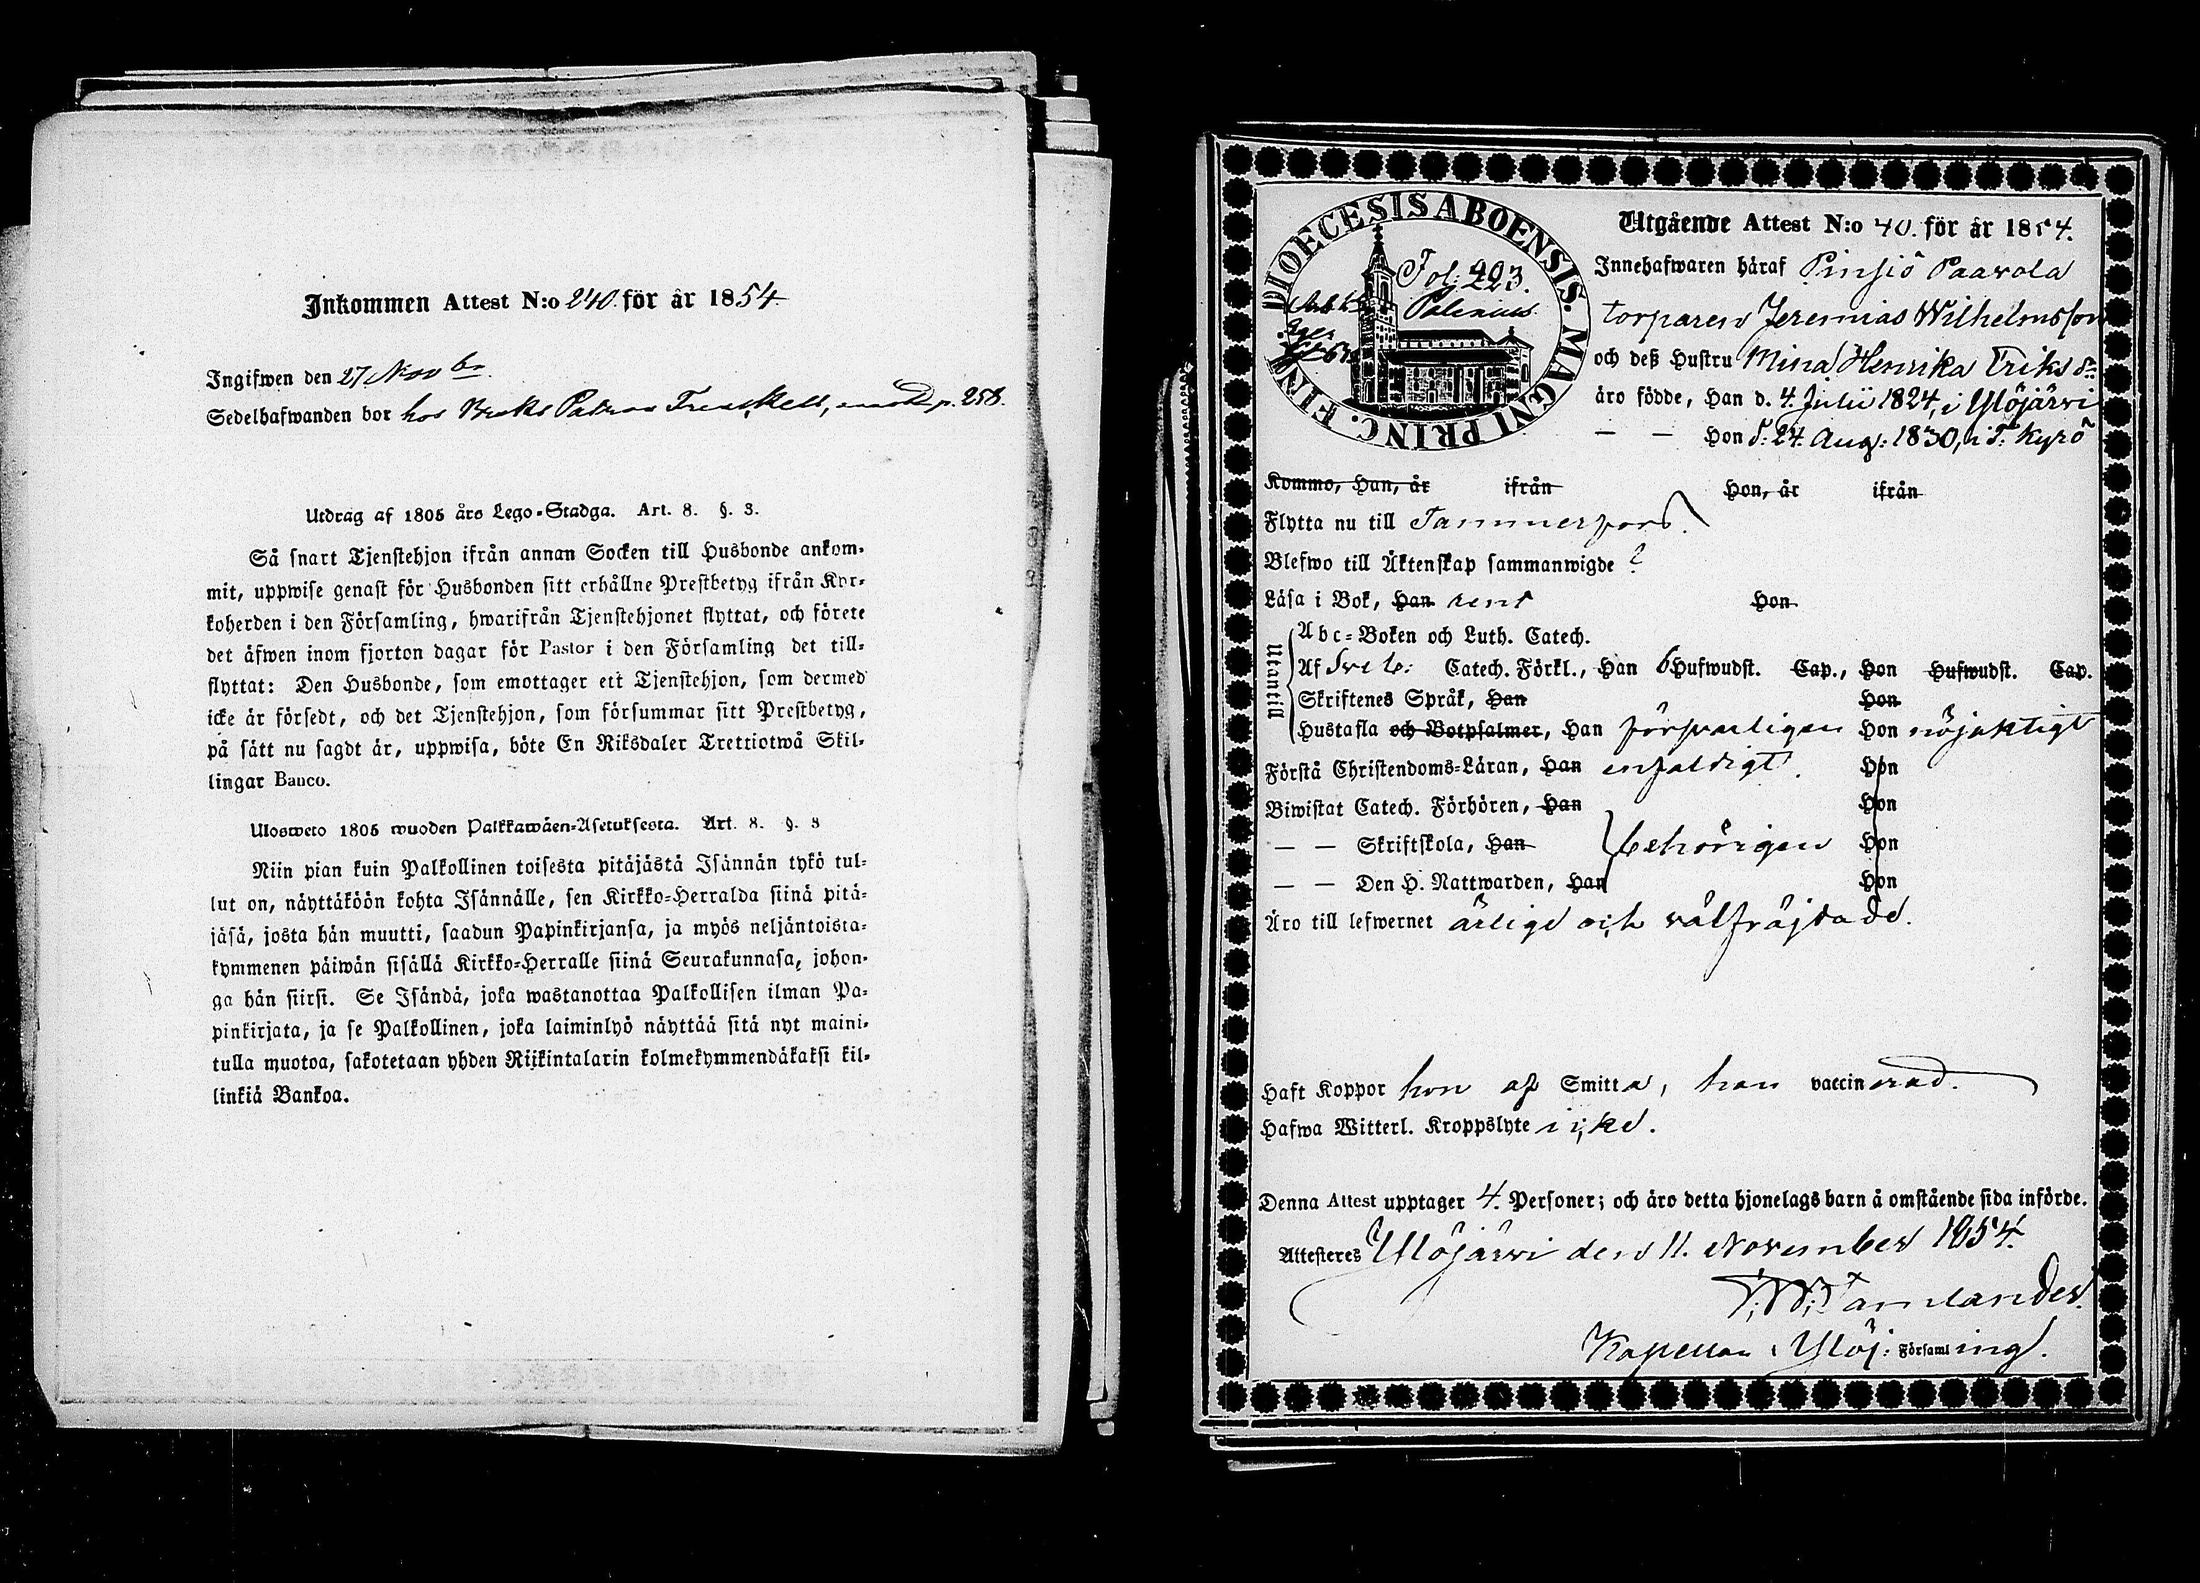 Inkommen Attest N:o 240 för år 1854
Ingifwen den 27 Novbr
Sedelhafwanden bor hos Bruks Patron Frenckell, p. 258.
Utdrag af 1805 års Lego-Stadga. Art. 8. §. 3.
Så snart Tjenstehjon ifrån annan Socken till Husbonde ankom-
mit, uppwise genast för Husbonden sitt erhållne Prestbetyg ifrån Kyr-
koherden i den Församling, hwarifrån Tjenstehjonet flyttat, och förete
det äfwen inom fjorton dagar för Pastor i den Församling det till-
flyttat: Den Husbonde, som emottager ett Tjenstehjon, som dermed
icke är försedt, och det Tjenstehjon, som försummar sitt Prestbetyg,
på sätt nu sagdt är, uppwisa, böte En Riksdaler Trettiotwå Skil-
lingar Banco.
Ulosweto 1805 wuoden Palkkawäen-Asetuksesta. Art. 8. §. 3
Niin pian kuin Palkollinen toisesta pitäjästä Isännän tykö tul-
lut on, näyttäköön kohta Isännälle, sen Kirkko-Herralda siinä pitä-
jäsä, josta hän muutti, saadun Papinkirjansa, ja myös neljäntoista-
kymmenen päiwän sisällä Kirkko-Herralle siinä Seurakunnasa, johon-
ga hän siirsi. Se Isändä, joka wastanottaa Palkollisen ilman Pa-
pinkirjata, ja se Palkollinen, joka laiminlyö näyttää sitä nyt maini-
tulla muotoa, sakotetaan yhden Riikintalarin kolmekymmendäkaksi kil-
linkiä Bankoa.
DIOECESIS ABOENSIS. MAGNI PRINC. FINL.
Fol: 223.
Palenius
Utgående Attest N:o 40. för år 1854.
Innehafwaren häraf Pinsiö Paavola
torparen Jeremias Wilhelmsson
och deß Hustru Mina Henrika Eriks dr
äro födde, Han d. 4. Julii 1824, i Ylöjärvi
— — Hon d: 24. Aug: 1830, i T: Kyrö
Kommo, Han, år ifrån Hon, år ifrån
Flytta nu till Tammerfors.
Blefwo till Äktenskap sammanwigde ?
Läsa i Bok, Han rent Hon
Utantill
Abc-Boken och Luth. Catech.
Af Sveb: Catech. Förkl., Han 6 Hufwudst. Cap., Hon Hufwudst. Cap.
Skriftenes Språk, Han Hon
Hustafla och Botpsalmer, Han försvarligen Hon nöjaktigt
Förstå Christendoms-Läran, Han enfaldigt. Hon
Biwistat Catech. Förhören, Han Hon
— — Skriftskola, Han behörigen Hon
— — Den H. Nattwarden, Han Hon
Äro till lefwernet ärliga och välfräjdade.
Haft Koppor hon af Smitta, han vaccinerad.
Hafwa Witterl. Kroppslyte icke.
Denna Attest upptager 4. Personer; och äro detta hjonelags barn å omstående sida införde.
Attesteres Ylöjärvi den 11. November 1854.
Kapellan i Ylöj: Församling.